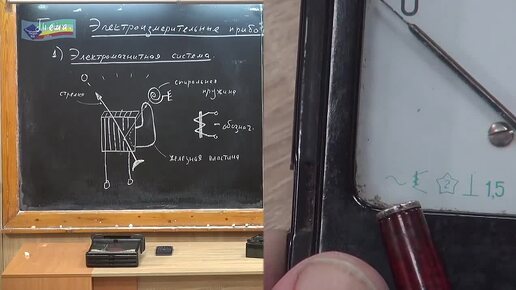 Тема: Электроизмерительные прибо
1) Электромагнитная система.
0
спиральная пружина
стрелка
- обознач.
железная пластина
0
~ 2 ⊥ 1,5